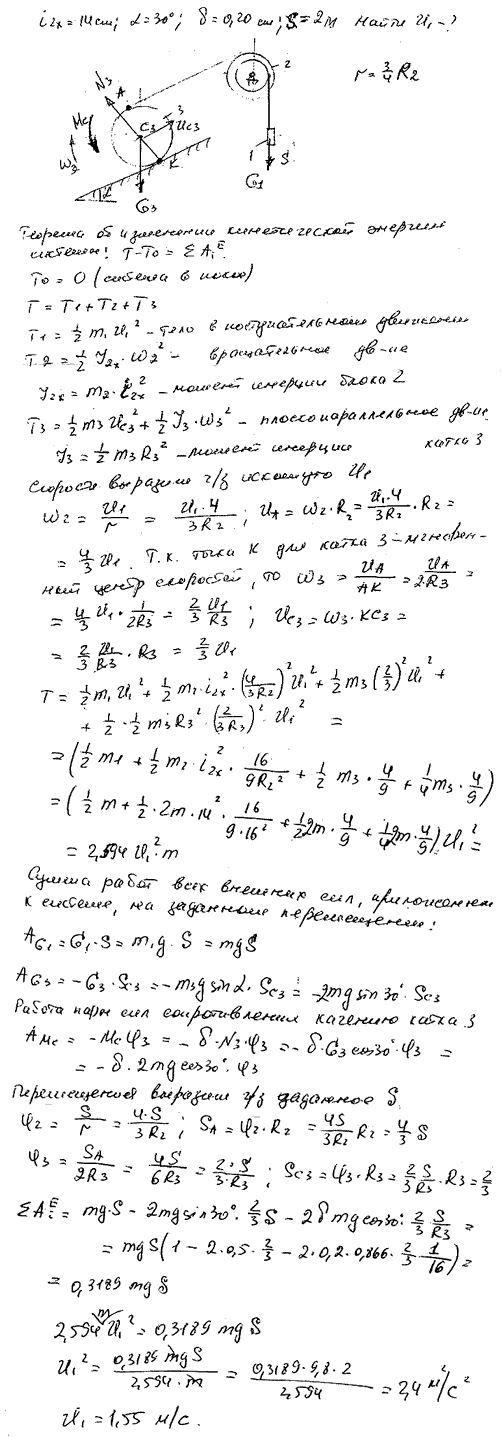 i₂ₓ = 14 см; α = 30°; δ = 0,20 см; S = 2 м Найти υ₁ - ?
r = 3/4 R₂
N₃ A 1 2
Mc C₃ 3 υc₃
ω₃ K 1 S
α G₃ G₁
Теорема об изменении кинетической энергии
системы: T - T₀ = Σ Aᵢᴱ.
T₀ = 0 (система в покое)
T = T₁ + T₂ + T₃
T₁ = 1/2 m₁ υ₁² - тело в поступательном движении
T₂ = 1/2 J₂ₓ · ω₂² - вращательное дв-ие
J₂ₓ = m₂ · i₂ₓ² - момент инерции блока 2
T₃ = 1/2 m₃ υc₃² + 1/2 J₃ · ω₃² - плоскопараллельное дв-ие,
J₃ = 1/2 m₃ R₃² - момент инерции катка 3
Скорости выразим ч/з искомую υ₁
ω₂ = υ₁/r = υ₁·4/3R₂; υA = ω₂ · R₂ = υ₁·4/3R₂ · R₂ =
= 4/3 υ₁. Т.к. точка K для катка 3 - мгновен-
ный центр скоростей, то ω₃ = υA/AK = υA/2R₃ =
= 4/3 υ₁ · 1/2R₃ = 2/3 υ₁/R₃; υc₃ = ω₃ · KC₃ =
= 2/3 υ₁/R₃ · R₃ = 2/3 υ₁
T = 1/2 m₁ υ₁² + 1/2 m₂ · i₂ₓ² · (4/3R₂)² υ₁² + 1/2 m₃ (2/3)² υ₁² +
+ 1/2 · 1/2 m₃ R₃² · (2/3R₃)² · υ₁² =
= (1/2 m₁ + 1/2 m₂ · i₂ₓ² · 16/9R₂² + 1/2 m₃ · 4/9 + 1/4 m₃ · 4/9)
= (1/2 m + 1/2 · 2m · 14² · 16/9·16² + 1/2 2m · 4/9 + 1/4 2m · 4/9) υ₁² =
= 2,594 υ₁² · m
Сумма работ всех внешних сил, приложенных
к системе, на заданном перемещении:
A_G₁ = G₁ · S = m₁g · S = mgS
A_G₃ = -G₃ · Sc₃ = -m₃g sin α · Sc₃ = -2mg sin 30° · Sc₃
Работа пары сил сопротивления качению катка 3
A_Mc = -Mc φ₃ = -δ · N₃ · φ₃ = -δ · G₃ cos 30° · φ₃ =
= -δ · 2mg cos 30° · φ₃
Перемещения выразим ч/з заданное S.
φ₂ = S/r = 4·S/3R₂; S_A = φ₂ · R₂ = 4S/3R₂ R₂ = 4/3 S
φ₃ = S_A/2R₃ = 4S/6R₃ = 2·S/3·R₃; Sc₃ = φ₃ · R₃ = 2/3 S/R₃ · R₃ = 2/3
Σ Aᵢᴱ = mg·S - 2mg sin 30° · 2/3 S - 2δ mg cos 30° · 2/3 S/R₃ =
= mgS (1 - 2 · 0,5 · 2/3 - 2 · 0,2 · 0,866 · 2/3 · 1/16) =
= 0,3189 mgS
2,594 m υ₁² = 0,3189 mgS
υ₁² = 0,3189 mgS/2,594 · m = 0,3189 · 9,8 · 2/2,594 = 2,4 м²/с²
υ₁ = 1,55 м/с.